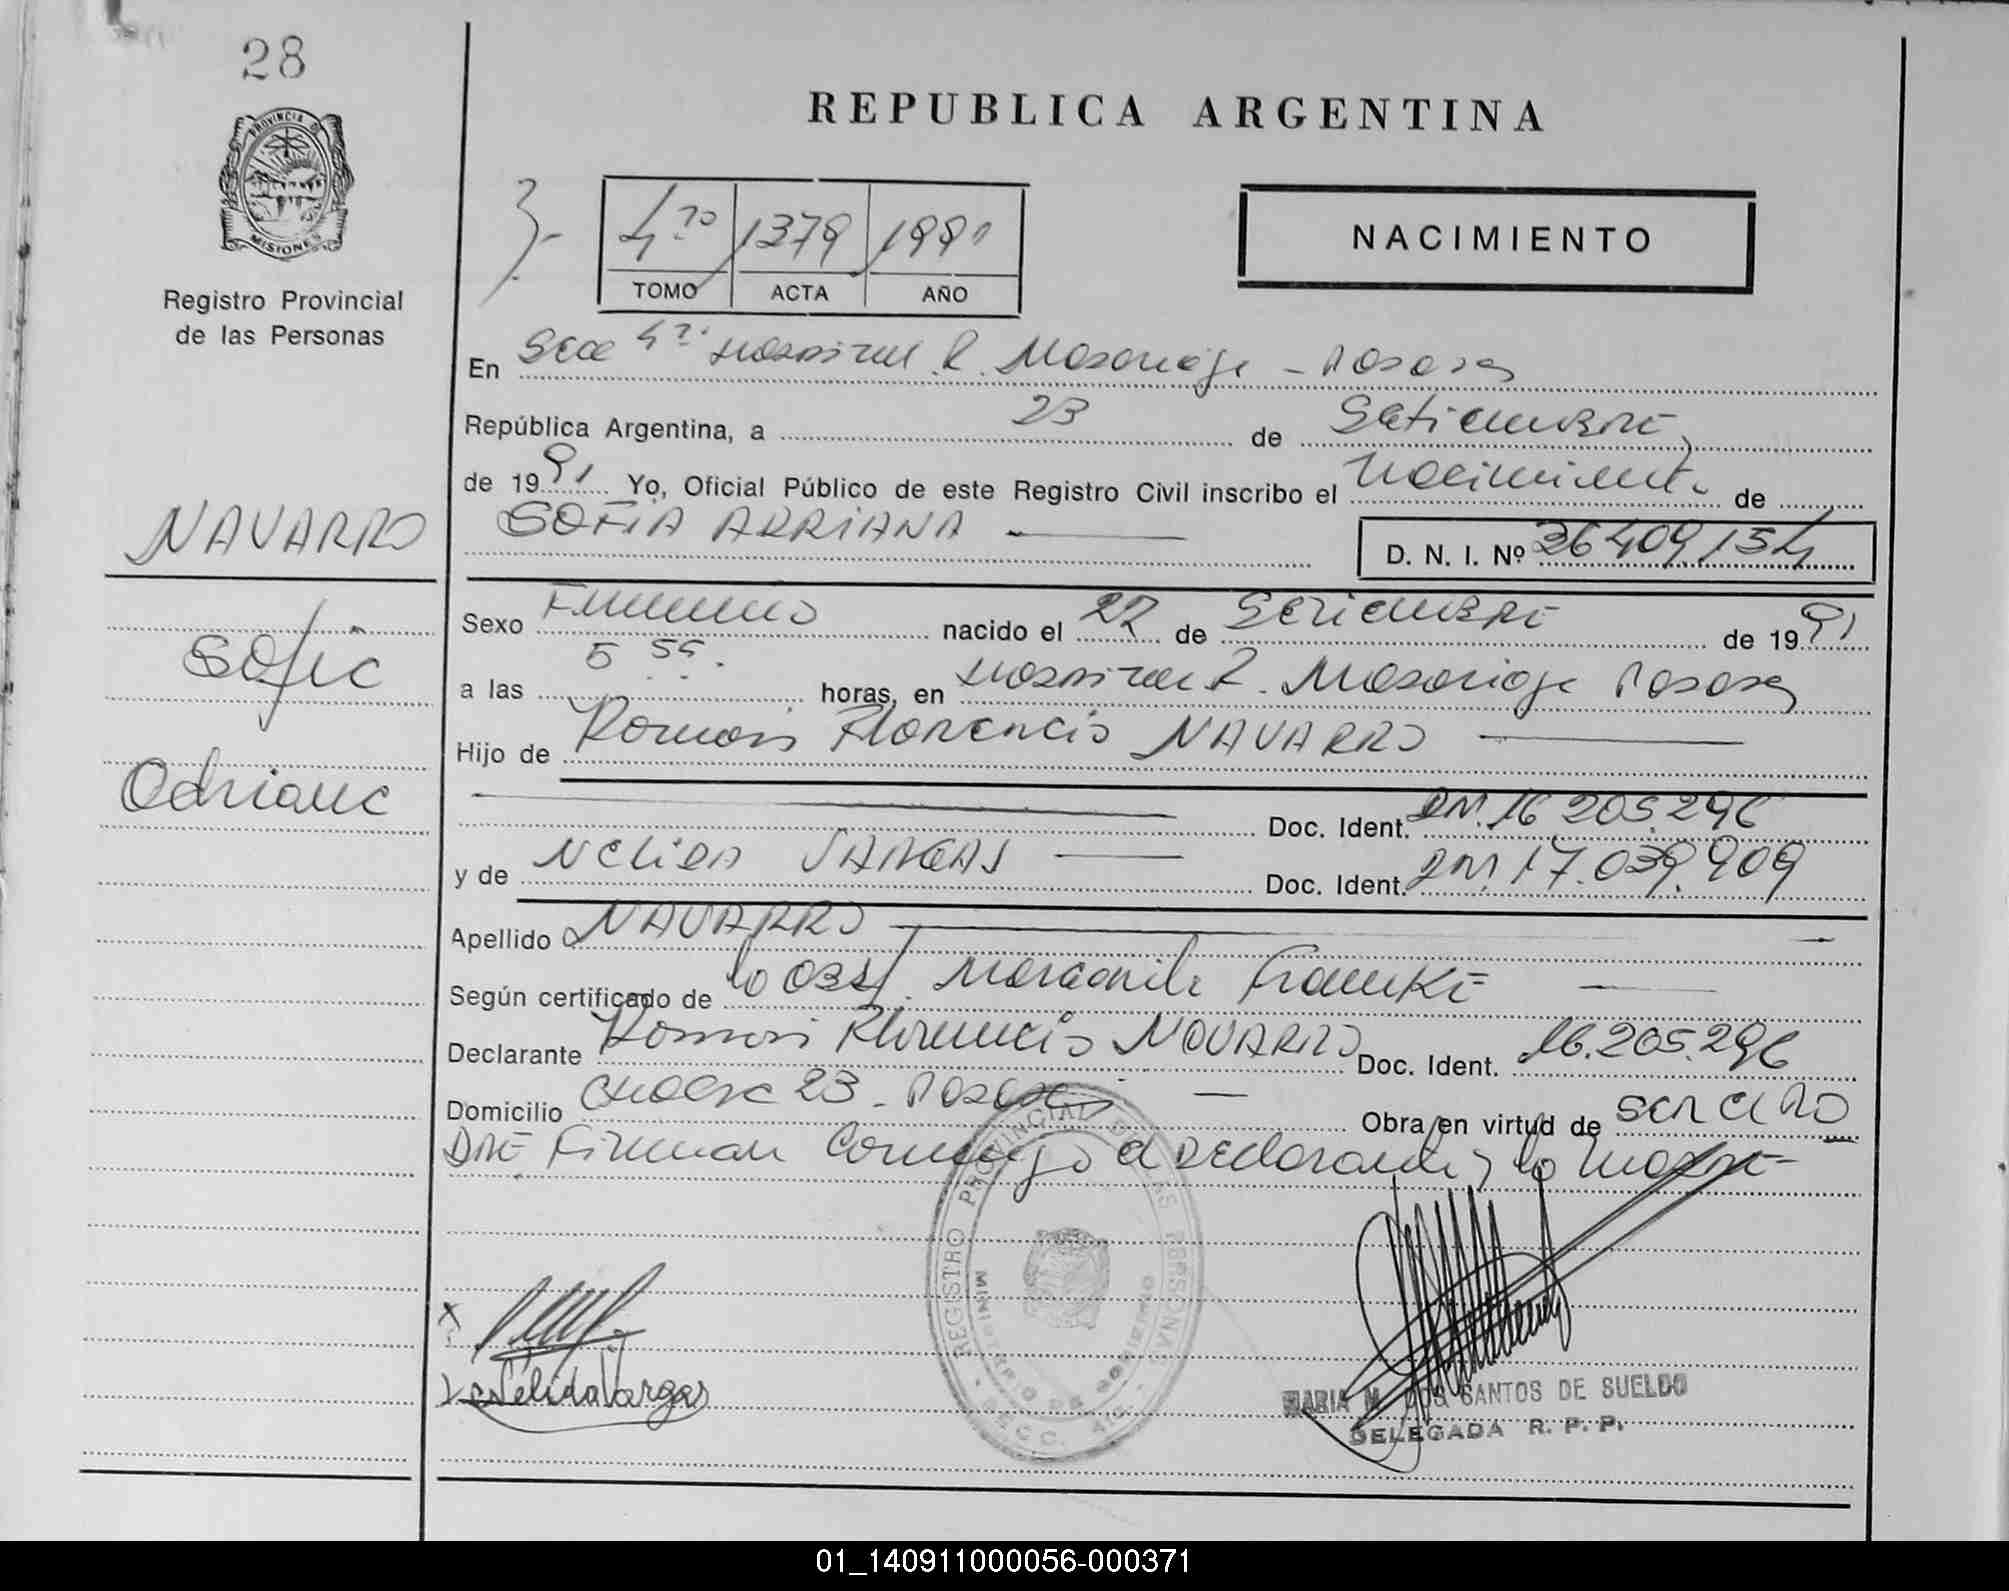 28
PROVINCIA D
MISIONES
Registro Provincial
de las Personas
REPUBLICA ARGENTINA
4to 1379 1991
TOMO ACTA AÑO
NACIMIENTO
En Secc 4ta Hospital R. Madariaga - Posadas
República Argentina, a 23 de Setiembre
de 1991 Yo, Oficial Público de este Registro Civil inscribo el Nacimiento de
SOFIA ADRIANA
D. N. I. Nº 36409154
NAVARRO
Sofia
Adriana
Sexo Femenino nacido el 22 de Setiembre de 1991
a las 5 55 horas, en Hospital R. Madariaga Posadas
Hijo de Ramon Florencio NAVARRO
Doc. Ident. DNI. 16.205.296
y de Nelida VARGAS Doc. Ident. DNI. 17.039.909
Apellido NAVARRO
Según certificado de la Obst. Margarita Franke
Declarante Ramon Florencio NAVARRO Doc. Ident. 16.205.296
Domicilio Chacra 23 - Posadas Obra en virtud de ser el PA
DRE Firman conmigo el declarante y la madre
REGISTRO PROVINCIAL DE LAS PERSONAS
MINISTERIO DE GOBIERNO
SECC. 4a.
x
Nelida Vargas
MARIA M. DOS SANTOS DE SUELDO
DELEGADA R. P. P.
01_140911000056-000371